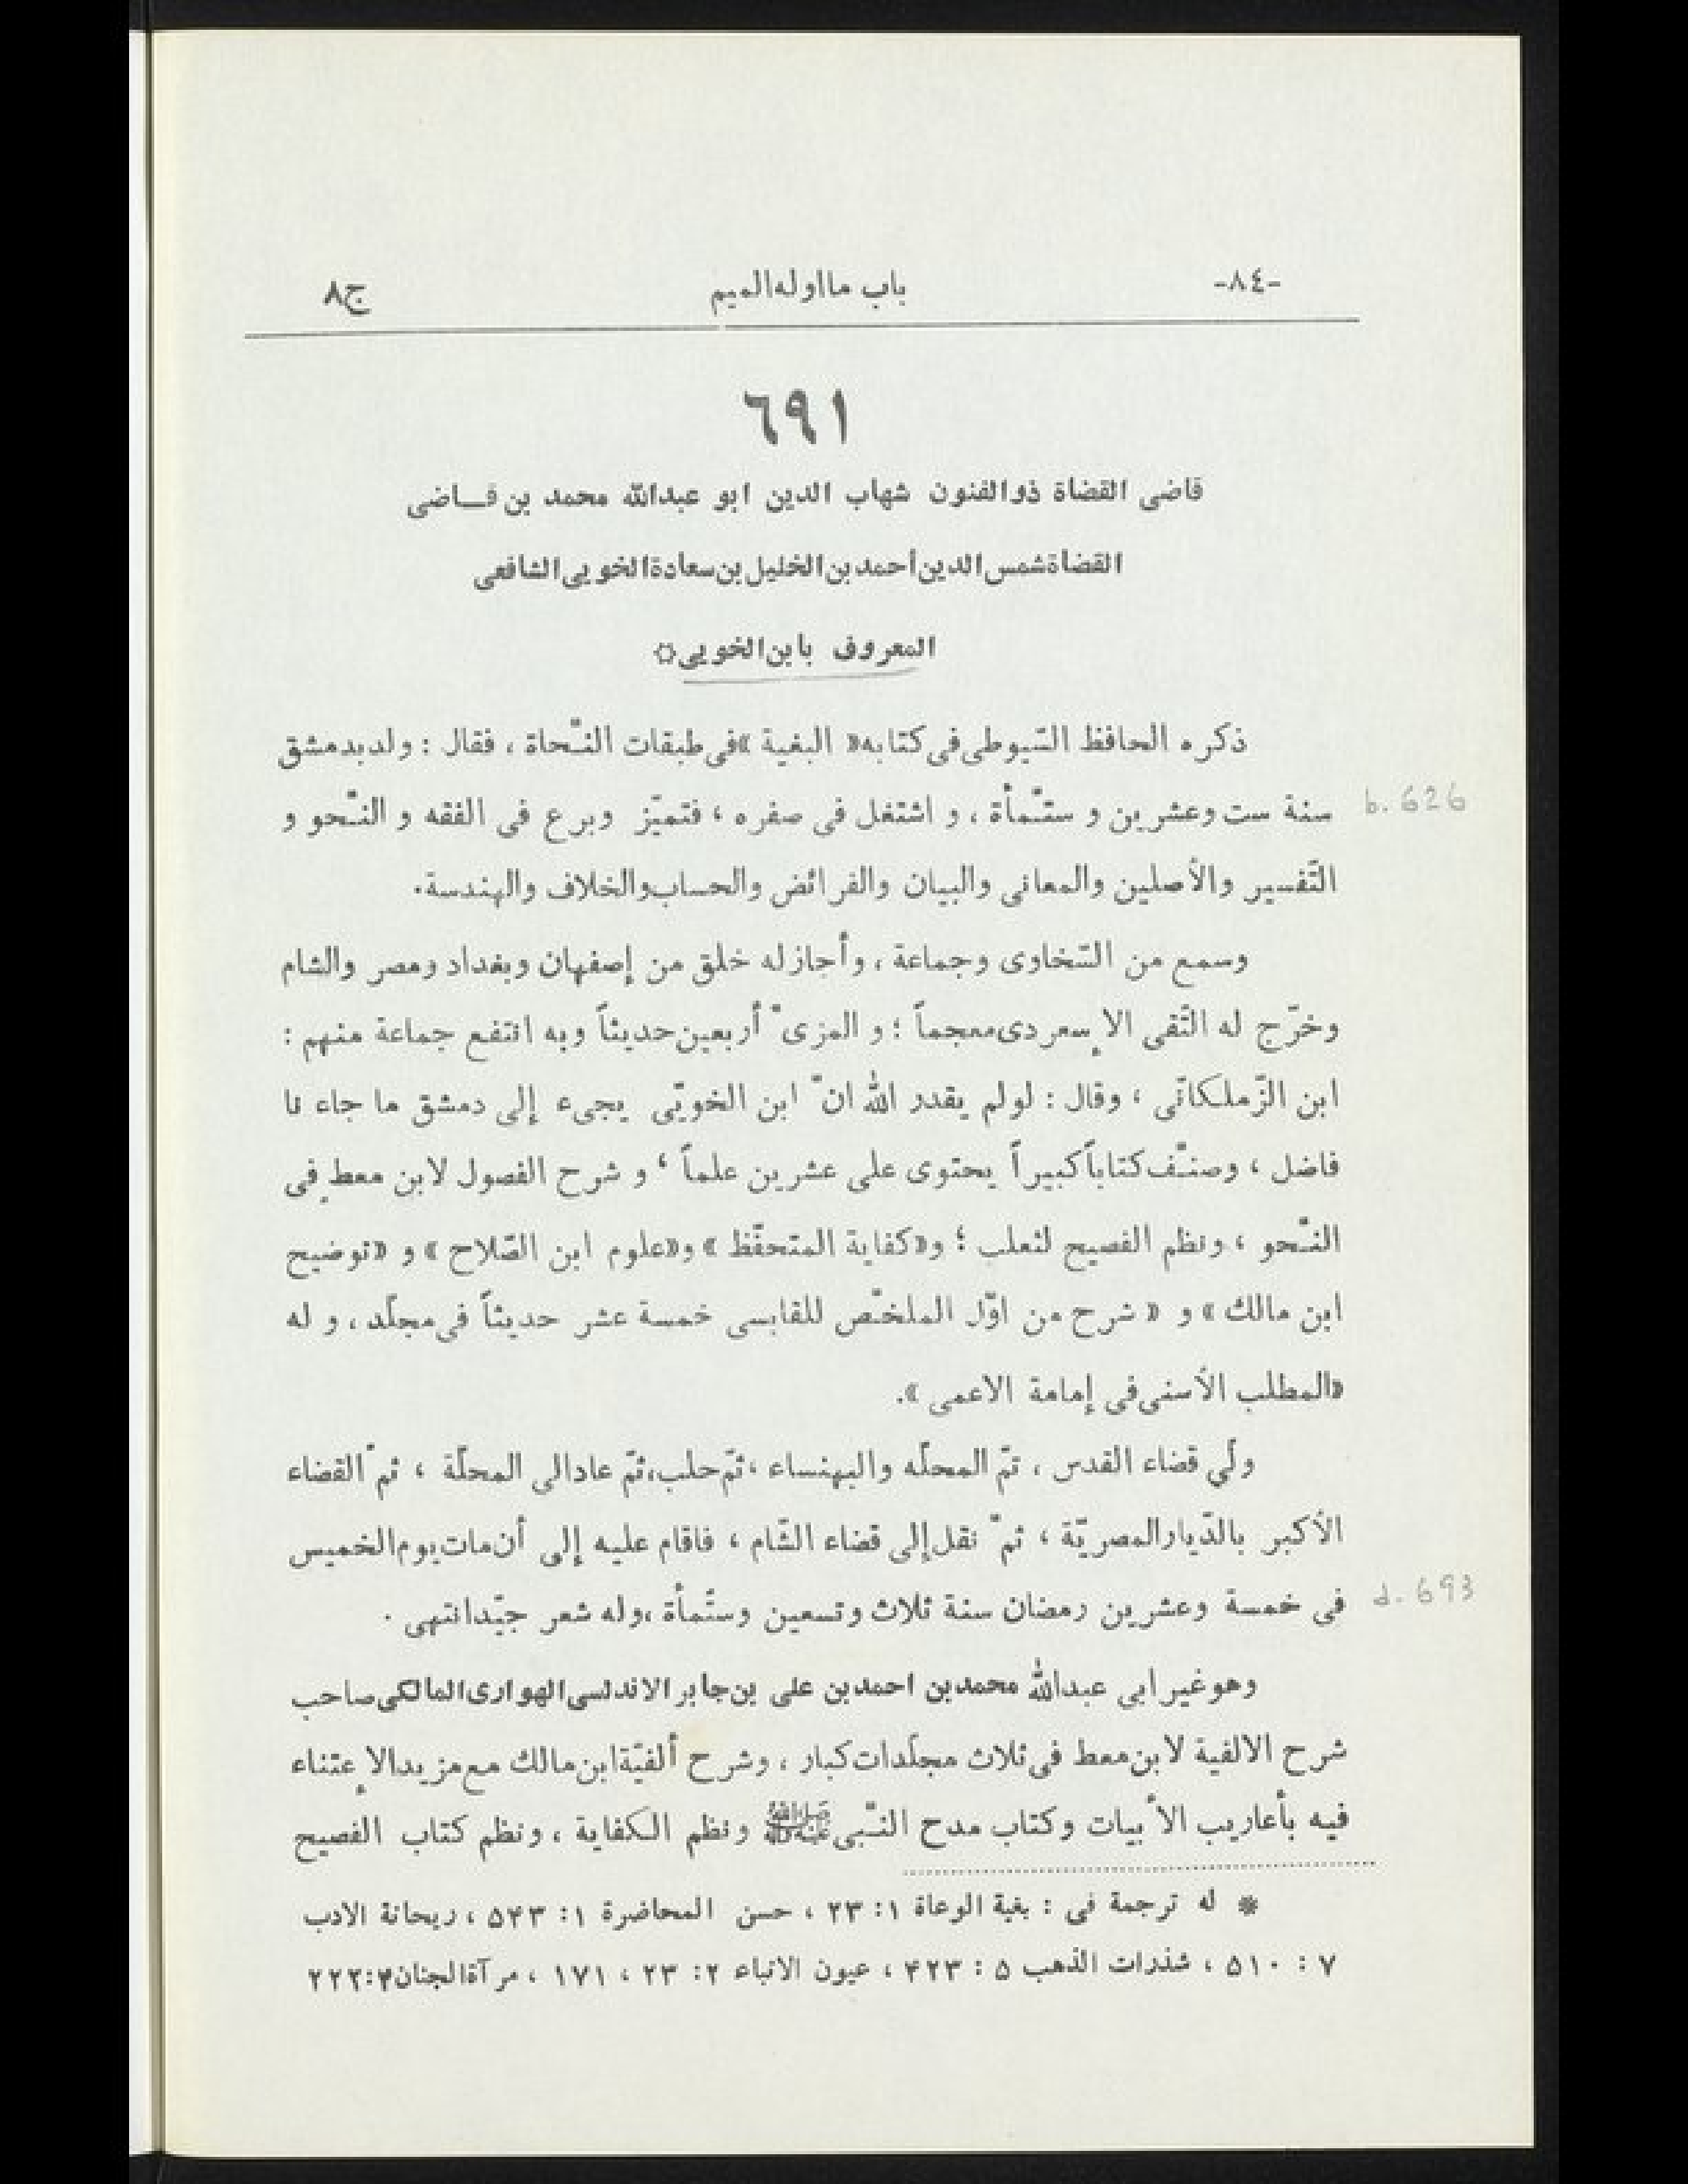 -٨٤- باب ما اوله الميم ج٨
٦٩١
قاضى القضاة ذو الفنون شهاب الدين ابو عبدالله محمد بن قـاضى
القضاة شمس الدين أحمد بن الخليل بن سعادة الخويى الشافعى
المعروف بابن الخويى۞
ذكره الحافظ السّيوطى فى كتابه« البغية »فى طبقات النّحاة ، فقال : ولد بدمشق
سنة ست وعشرين و ستّمأة ، و اشتغل فى صغره ، فتميّز وبرع فى الفقه و النّحو و
b. 626
التّفسير والأصلين والمعانى والبيان والفرائض والحساب والخلاف والهندسة.
وسمع من السّخاوى وجماعة ، وأجازله خلق من إصفهان وبغداد ومصر والشام
وخرّج له التّقى الإسعردى معجماً ؛ و المزىّ أربعين حديثاً وبه انتفع جماعة منهم :
ابن الزّملكانّى ، وقال : لولم يقدر الله انّ ابن الخويّى يجىء إلى دمشق ما جاء نا
فاضل ، وصنّف كتاباً كبيراً يحتوى على عشرين علماً ، و شرح الفصول لابن معطٍ فى
النّحو ، ونظم الفصيح لثعلب ؛ و«كفاية المتحفّظ » و«علوم ابن الصّلاح » و «توضيح
ابن مالك » و « شرح من اوّل الملخّص للقابسى خمسة عشر حديثاً فى مجلّد ، و له
«المطلب الأسنى فى إمامة الاعمى ».
ولّى قضاء القدس ، ثمّ المحلّه والبهنساء ،ثمّ حلب،ثمّ عادالى المحلّة ، ثمّ القضاء
الأكبر بالدّيار المصريّة ، ثمّ نقل إلى قضاء الشّام ، فاقام عليه إلى أن مات يوم الخميس
فى خمسة وعشرين رمضان سنة ثلاث وتسعين وستّمأة ،وله شعر جيّد انتهى .
d. 693
وهو غير ابى عبدالله محمد بن احمد بن على بن جابر الاندلسى الهوارى المالكى صاحب
شرح الالفية لابن معط فى ثلاث مجلّدات كبار ، وشرح ألفيّة ابن مالك مع مزيد الإعتناء
فيه بأعاريب الأبيات وكتاب مدح النّبى ﷺ ونظم الكفاية ، ونظم كتاب الفصيح
* له ترجمة فى : بغية الوعاة ١ : ٢٣ ، حسن المحاضرة ١ : ۵۴۳ ، ريحانة الادب
٧ : ۵١٠ ، شذرات الذهب ۵ : ۴٢٣ ، عيون الانباء ٢ : ٢٣ ، ١٧١ ، مرآة الجنان ۴:٢٢٢